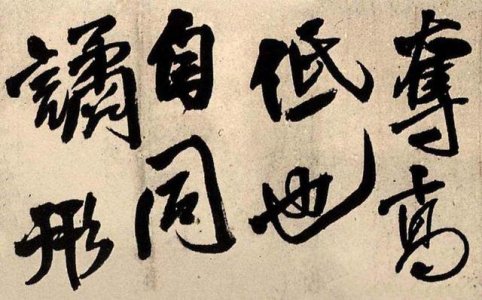 奪高
低也
自同
譎形